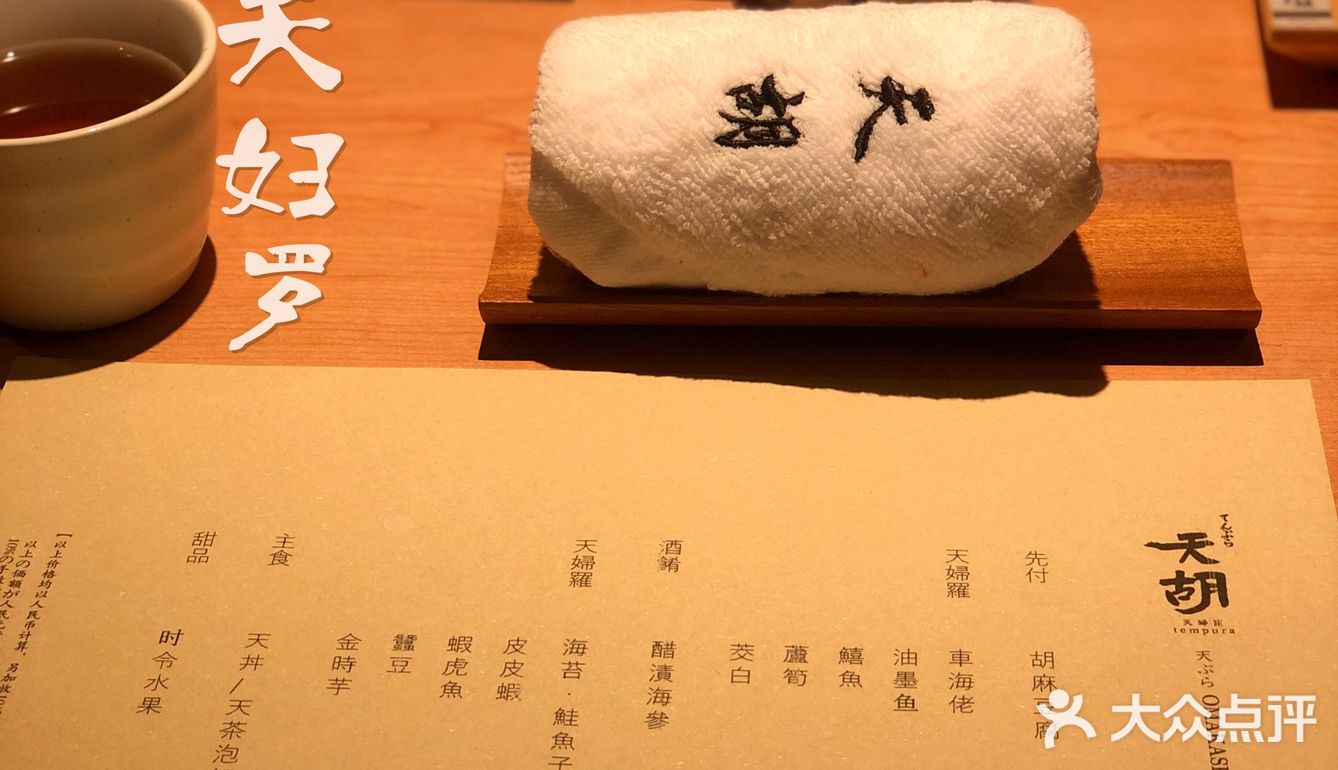 天妇罗
天胡
てんぷら
天胡
天婦羅
tempura
天ぷら OMAKASE
先付
胡麻豆腐
天婦羅
車海佬
油墨鱼
鱚魚
蘆筍
茭白
酒餚
醋漬海參
天婦羅
海苔·鮭魚子
皮皮蝦
蝦虎魚
蠶豆
金時芋
主食
天丼/天茶泡
甜品
时令水果
【以上价格均以人民币计算,另加收10
以上の価額が人民元
10%の手数
大众点评